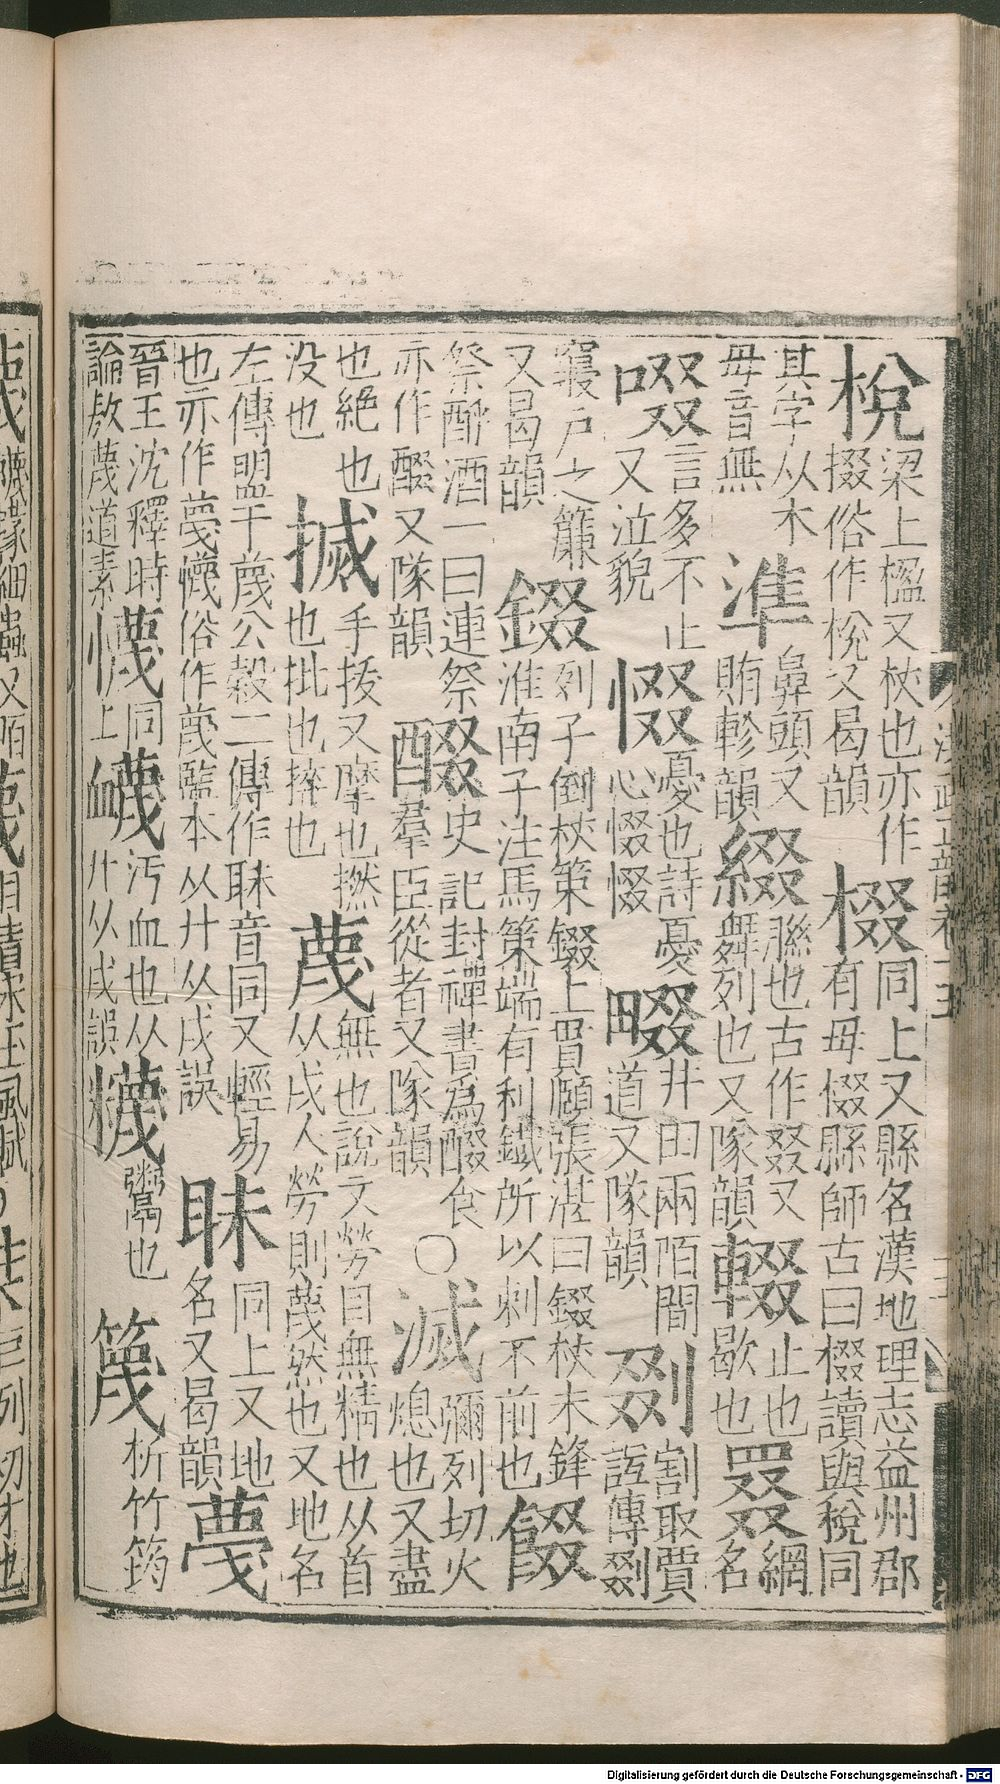 梲梁上楹又杖也亦作掇俗作梲又曷韻棳同上又縣名漢地理志益州郡有毋棳縣師古曰棳讀與梲同
其字从木毋音無準鼻頭又賄軫韻綴聮也古作叕又舞列也又隊韻輟止也歇也罬網名
啜言多不止又泣貌惙憂也詩憂心惙惙畷井田兩陌間道又隊韻剟割取賈誼傳剟
寢戶之簾又曷韻錣列子倒杖策錣上貫頤張湛曰錣杖末鋒淮南子注馬策端有利鐵所以刺不前也餟
祭酹酒一曰連祭亦作醊又隊韻醊史記封禪書爲醊食羣臣從者又隊韻○滅彌列切火熄也又盡
也絕也没也搣手拔又摩也撚也批也捽也蔑無也說文勞目無精也从首从戌人勞則蔑然也又地名
左傳盟于蔑公穀二傳作眜音同又輕易也亦作懱俗作蔑監本从廾从戌誤眜同上又地名又曷韻
晉王沈釋時論敖蔑道素懱同上衊汚血也从廾从戌誤䊳鬻也篾析竹筠
Digitalisierung gefördert durch die Deutsche Forschungsgemeinschaft - DFG